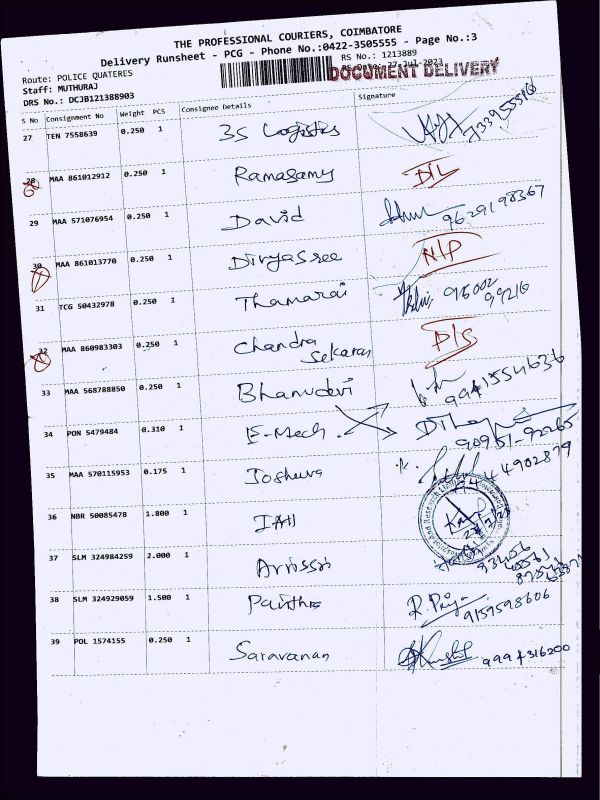 THE PROFESSIONAL COURIERS, COIMBATORE
Delivery Runsheet - PCG - Phone No.:0422-3505555 - Page No.:3
Route: POLICE QUATERES
RS No.: 1213889
Staff: MUTHURAJ
17-Jul-2023
DOCUMENT DELIVERY
DRS No.: DCJB121388903
S No Consignment No Weight PCS Consignee Details Signature
27 TEN 7558639 0.250 1 3S Logistics
28 MAA 861012912 0.250 1 Ramasamy D/L
29 MAA 571076954 0.250 1 David 9629198367
30 MAA 861013770 0.250 1 DivyaSree N/P
31 TCG 50432978 0.250 1 Thamarai 95002 99216
32 MAA 860983303 0.250 1 Chandra Sekaran D/S
33 MAA 568788850 0.250 1 Bhanudevi 9941554636
34 PON 5479484 0.310 1 E-Mech 90951-92265
35 MAA 570115953 0.175 1 Joshuva 44902879
36 NBR 50085478 1.800 1
37 SLM 324984259 2.000 1
38 SLM 324929059 1.500 1 R. Priya 9159598606
39 POL 1574155 0.250 1 Saravanan 9994316200